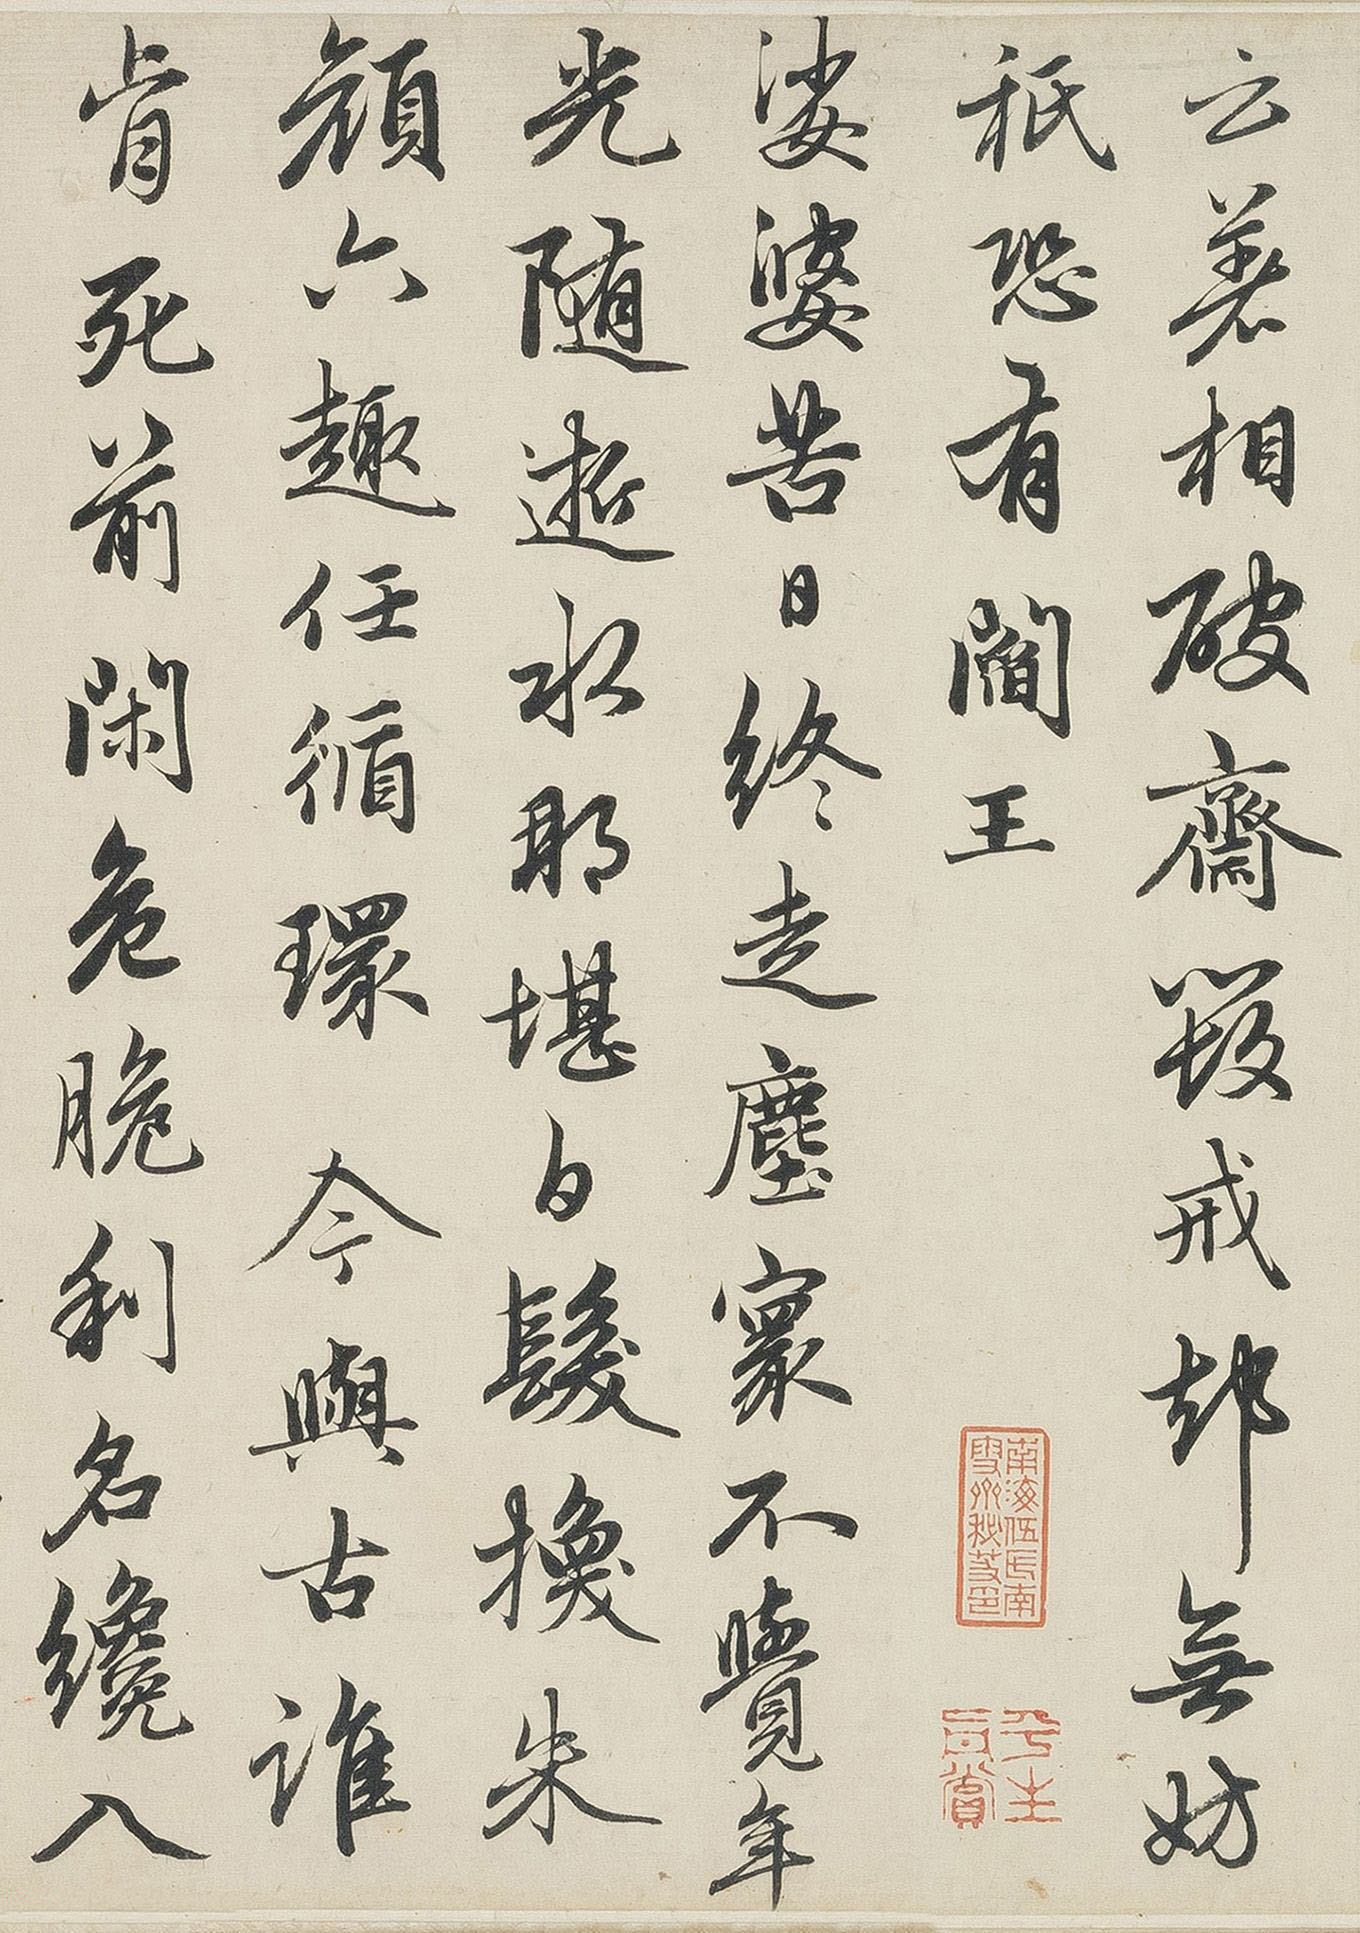 云著相破齋毀戒却無妨
祇恐有閻王
娑婆苦日終走塵寰不覺年
光随逝水那堪白髮換朱
顔六趣任循環今與古誰
肯死前閑危脆利名纔入
南海伍氏南
雪齋秘笈印
平生
真賞